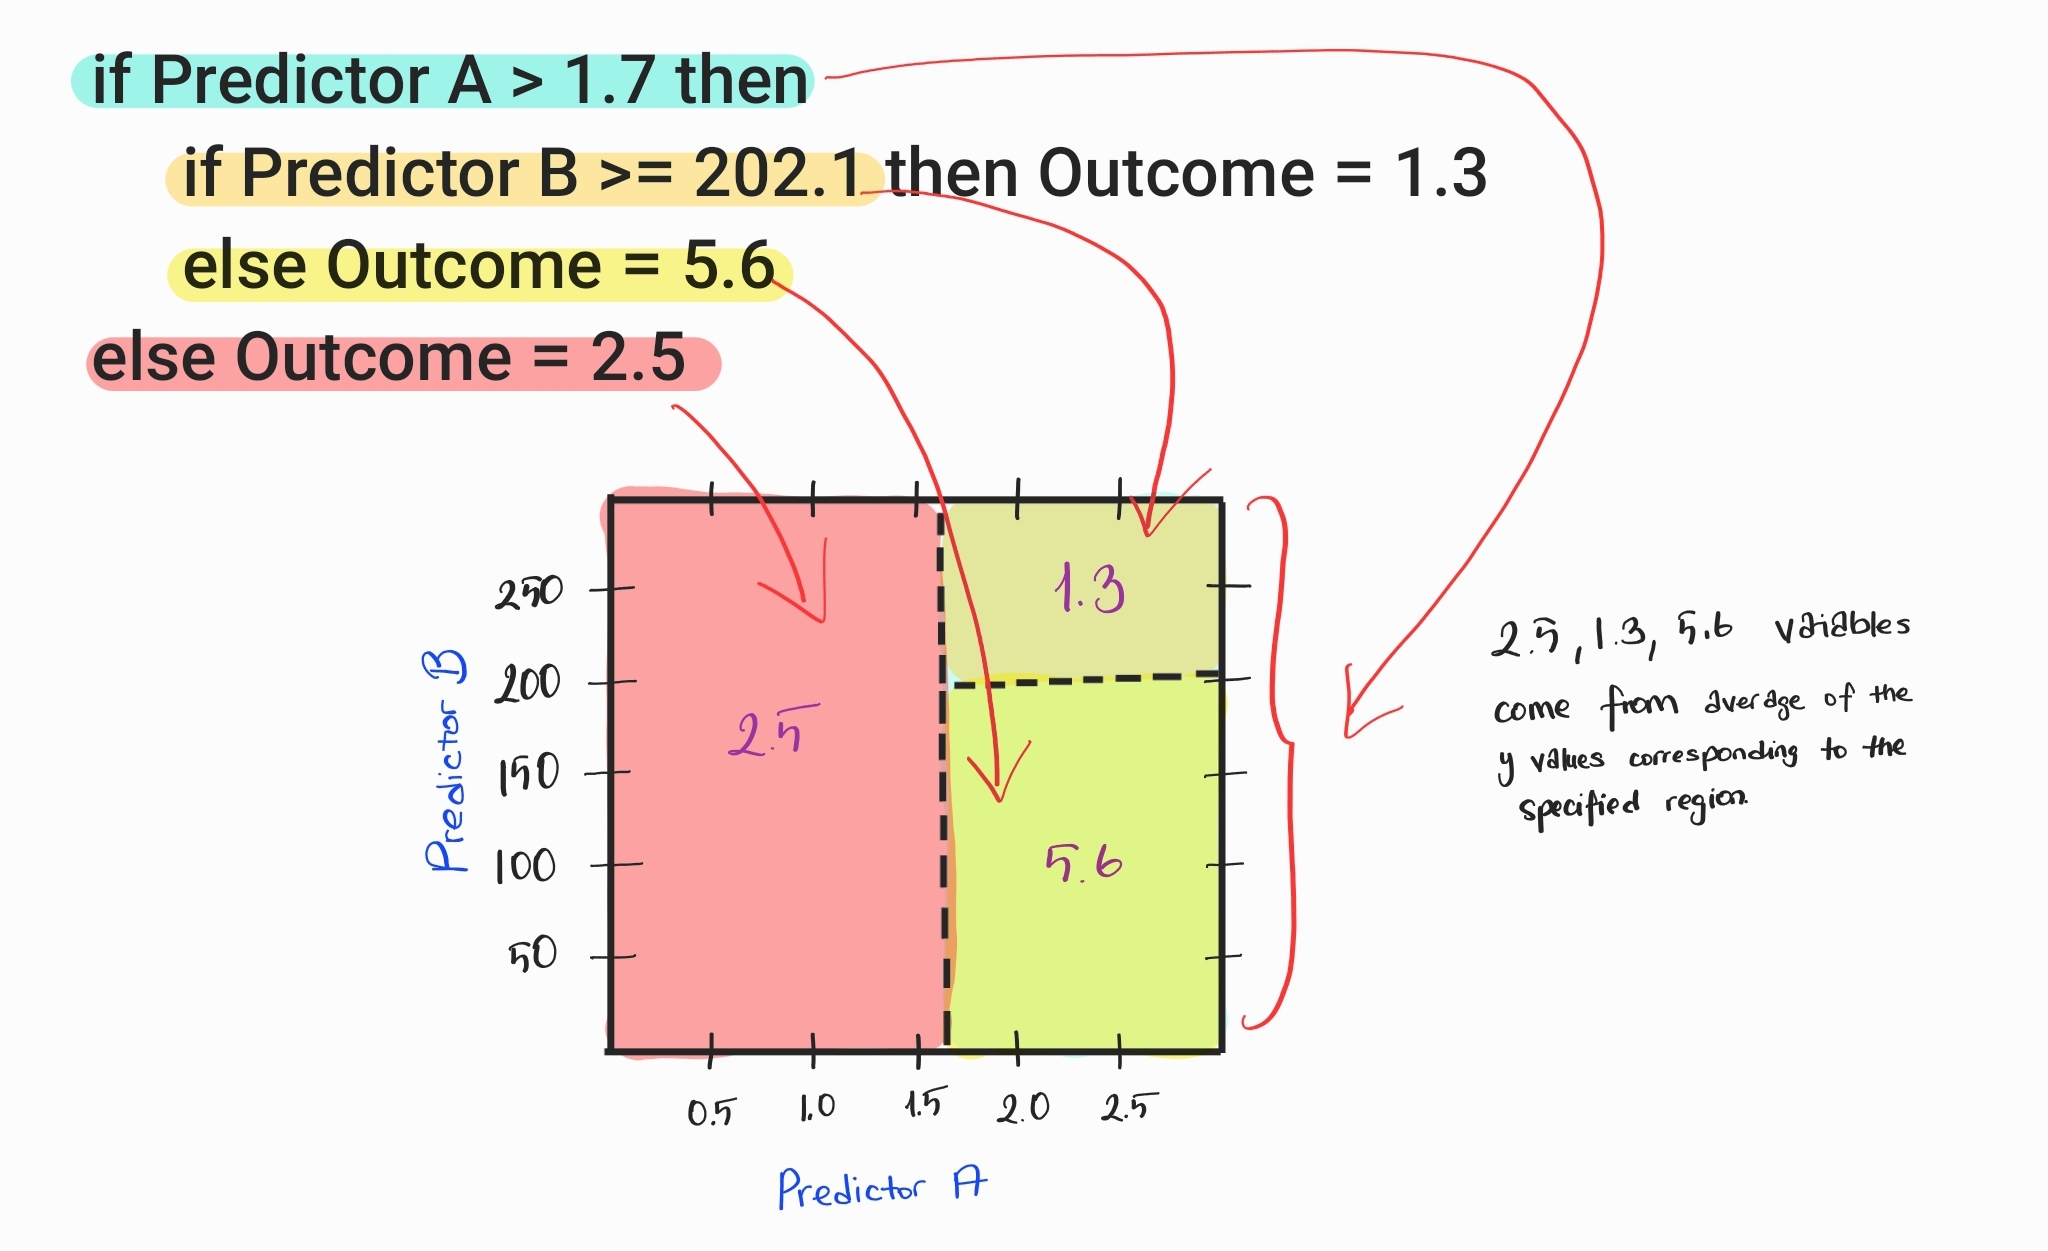 if Predictor A > 1.7 then
if Predictor B >= 202.1 then Outcome = 1.3
else Outcome = 5.6
else Outcome = 2.5
250
200
150
100
50
Predictor B
2.5
1.3
5.6
0.5 1.0 1.5 2.0 2.5
Predictor A
2.5, 1.3, 5.6 variables
come from average of the
y values corresponding to the
specified region.